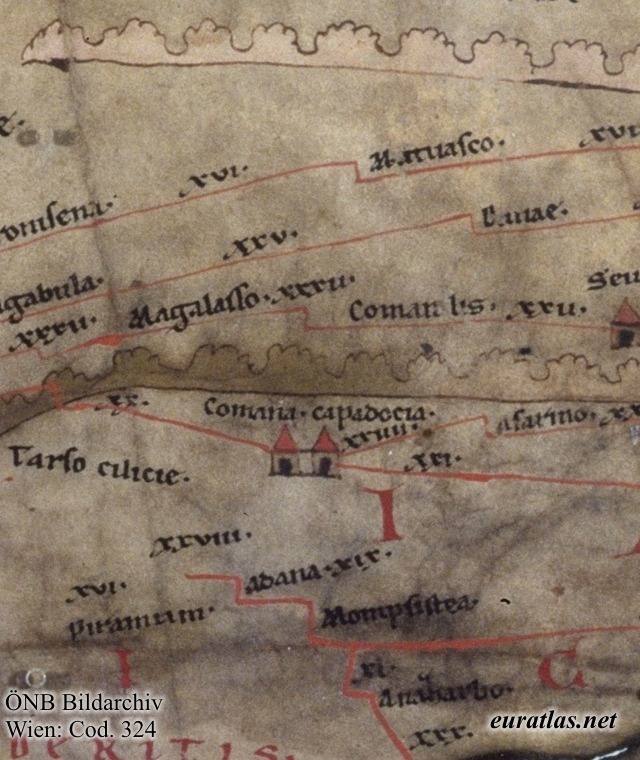 xvi. Matuasco. xvi
xxv. Daнae.
xxxv. Magalasso. xxxii. Comaralis. xxii.
xx. Comana. capadocia.
xxiiii. Asarino. xx
Tarso cilicie. xvi.
I
xxviii.
xvi. adana. xix.
piramum. Mompsistea.
xi.
I C
Anabarbo.
xxx.
ÖNB Bildarchiv
Wien: Cod. 324
euratlas.net